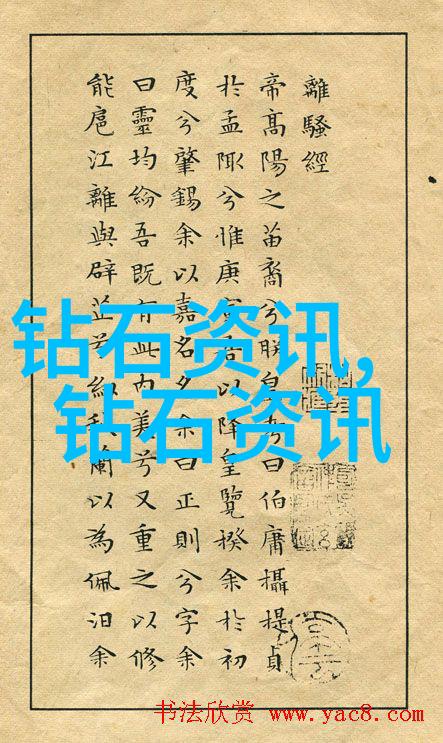 離騷經
帝高陽之苗裔兮朕皇考曰伯庸攝提貞
於孟陬兮惟庚寅吾以降皇覽揆余於初
度兮肇錫余以嘉名名余曰正則兮字余
曰靈均紛吾既有此內美兮又重之以修
能扈江離與辟芷兮紉秋蘭以為佩汨余
钻石资讯,
钻石资讯
书法欣赏 www.yac8.com